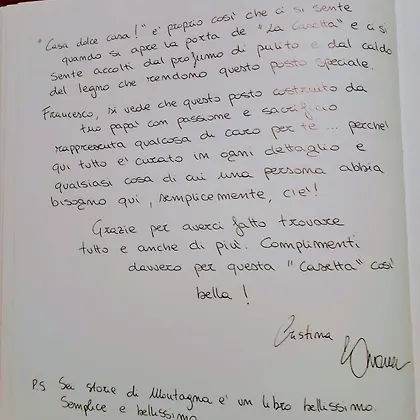 "Casa dolce casa!" e' proprio così che ci si sente
quando si apre la porta de "La Casetta" e ci si
sente accolti dal profumo di pulito e dal caldo
del legno che rendono questo posto speciale.
Francesco, si vede che questo posto costruito da
tuo papa' con passione e sacrificio
rappresenta qualcosa di caro per te ... perche'
qui tutto e' curato in ogni dettaglio e
qualsiasi cosa di cui una persona abbia
bisogno qui, semplicemente, c'e'!
Grazie per averci fatto trovare
tutto e anche di piu'. Complimenti
davvero per questa "Casetta" così
bella!
Cristina
P.S Sei storie di Montagna e' un libro bellissimo.
Semplice e bellissimo